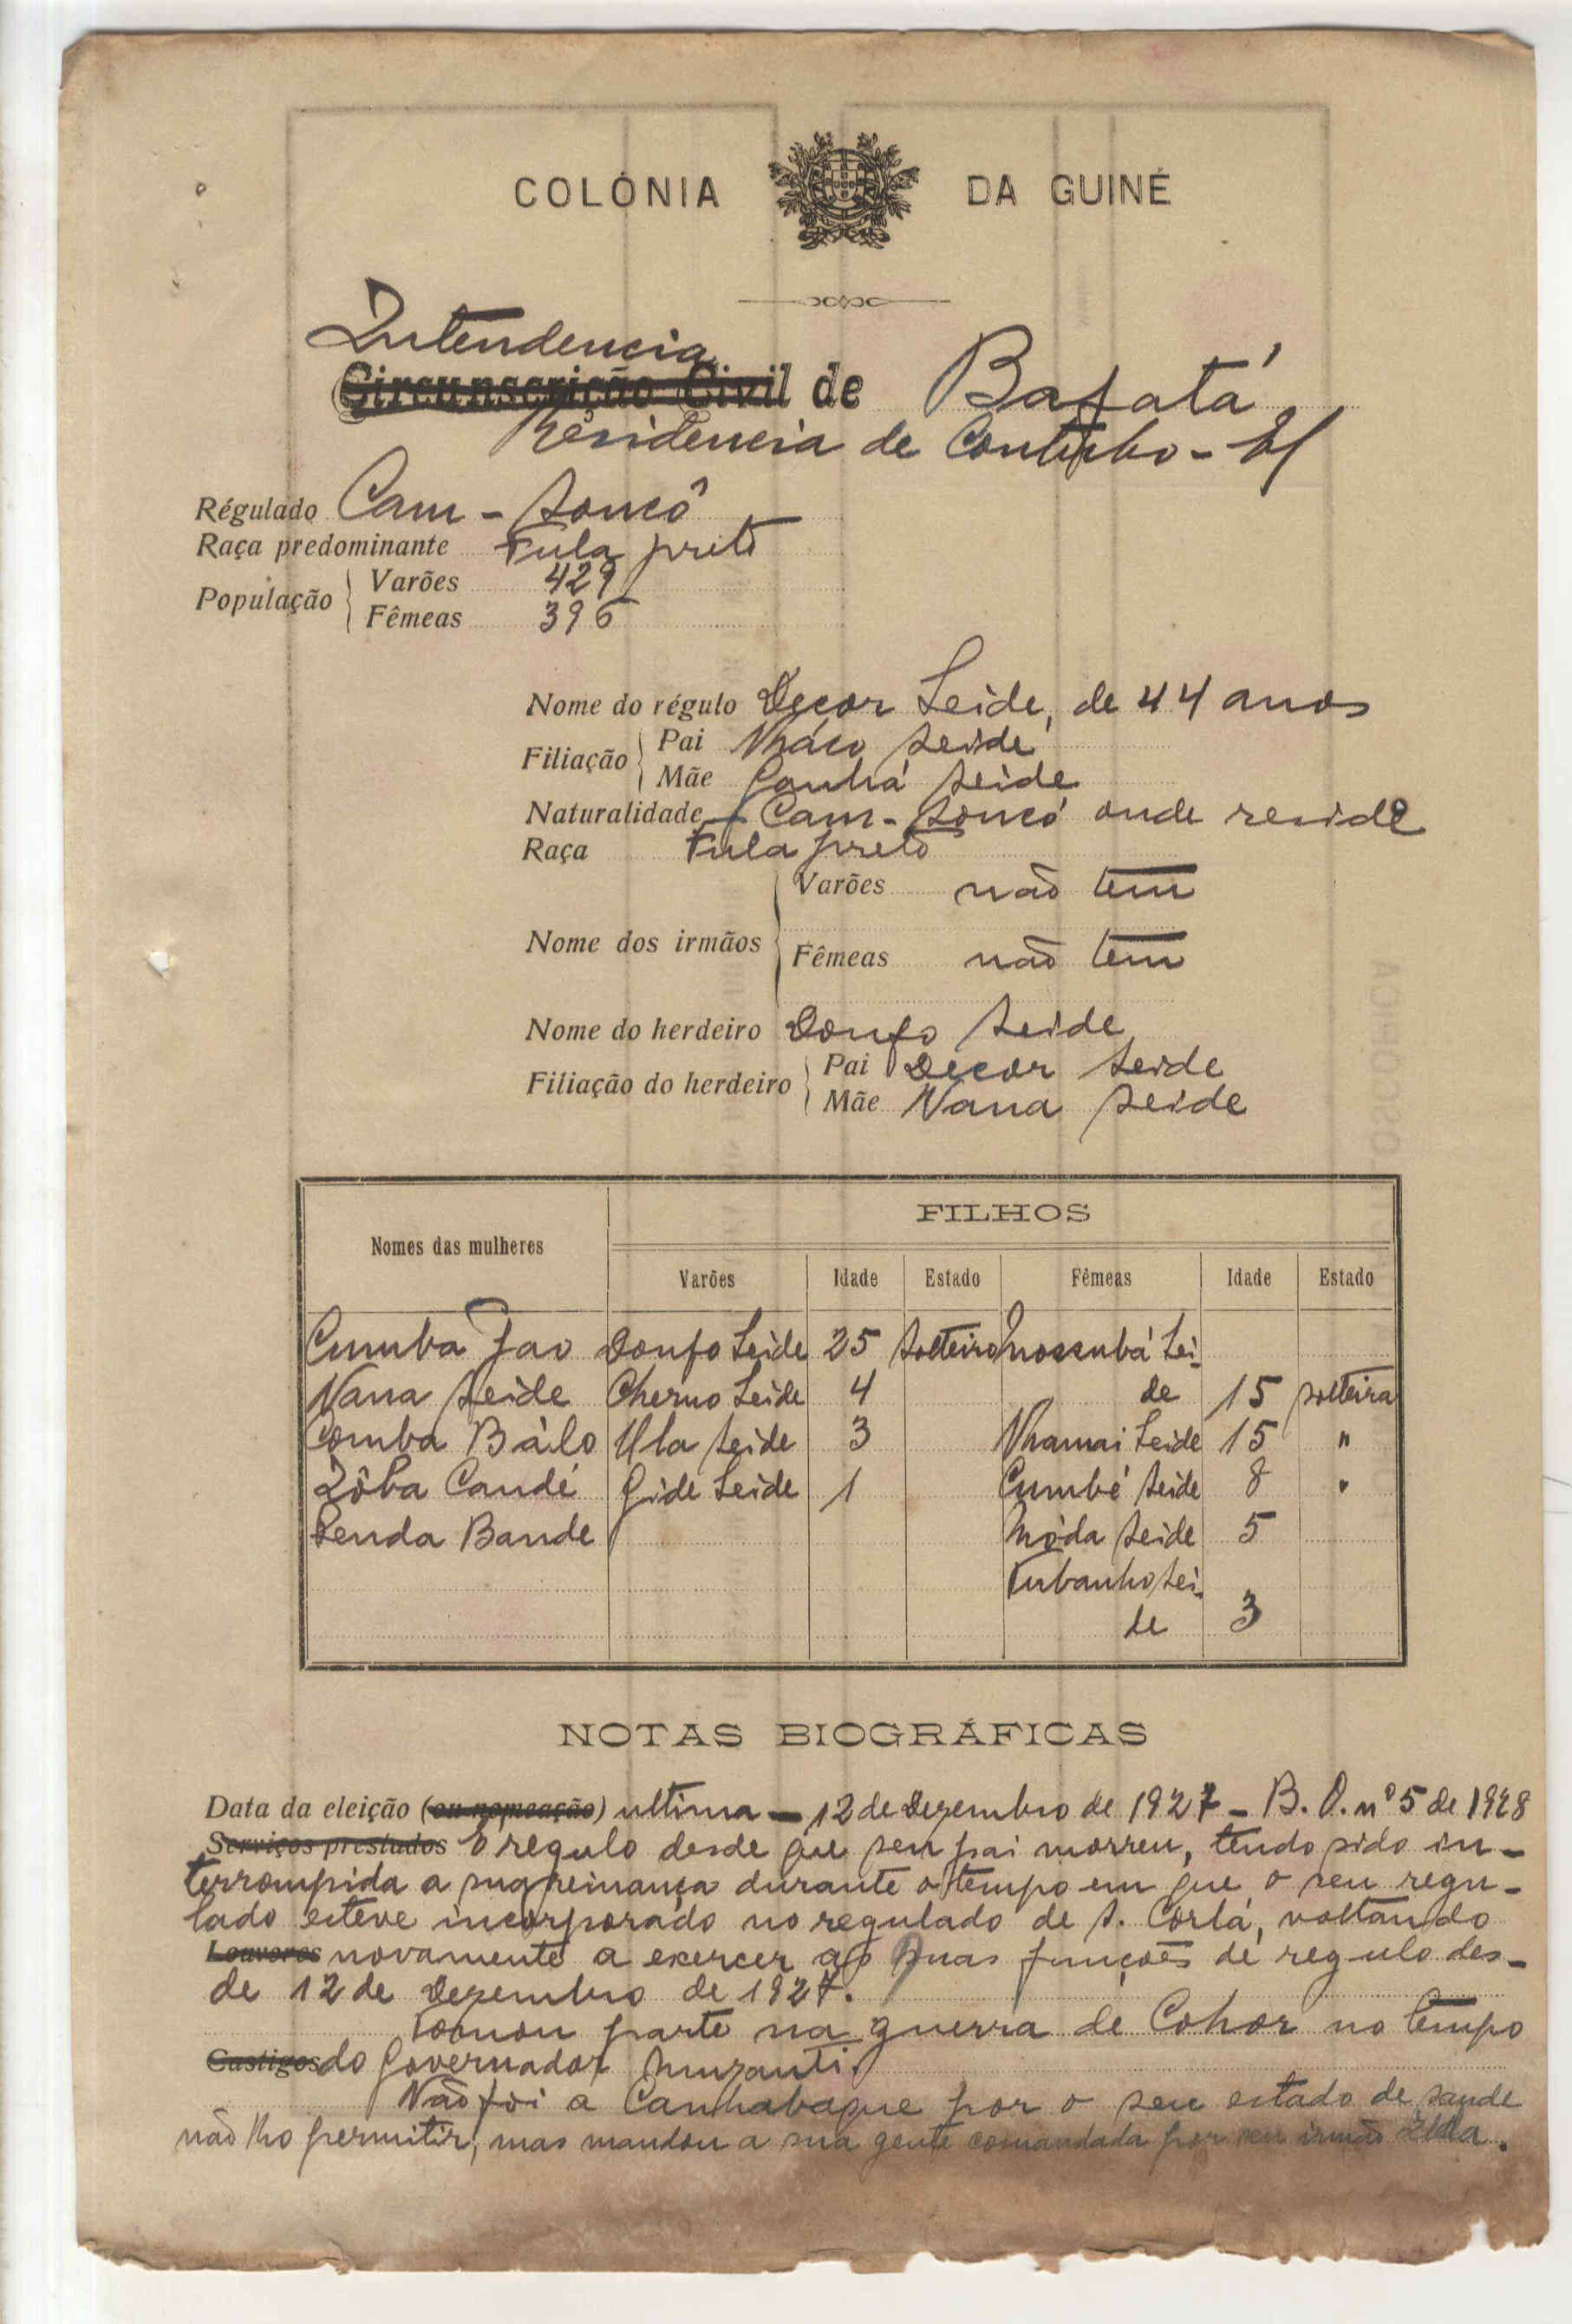 COLÓNIA DA GUINÉ
Intendencia
Circunscrição Civil de Bafatá
Residencia de Contubo-El
Régulado Cam-Soncô
Raça predominante Fula preto
População Varões 429
Fêmeas 396
Nome do régulo Decor Seide, de 44 anos
Filiação Pai Seide
Mãe Ganhá Seide
Naturalidade Cam-Soncó onde reside
Raça Fula preto
Varões não tem
Nome dos irmãos
Fêmeas não tem
Nome do herdeiro Donfo Seide
Filiação do herdeiro Pai Decor Seide
Mãe Nana Seide
FILHOS
Nomes das mulheres
Varões Idade Estado Fêmeas Idade Estado
Cumba Jao Donfo Seide 25 solteiro Mossubá Sei-
Nana Seide Cherno Seide 4 de 15 solteira
Comba Bálo Ula Seide 3 Nhamai Seide 15 "
Zôba Candé Gide Seide 1 Cumbé Seide 8 "
Penda Bande Móda Seide 5
Tubanho Sei-
de 3
NOTAS BIOGRÁFICAS
Data da eleição (ou nomeação) ultima - 12 de Dezembro de 1927 - B. O. nº 5 de 1928
Serviços prestados É regulo desde que seu pai morreu, tendo sido in-
terrompida a sua reinança durante o tempo em que o seu regu-
lado esteve incorporado no regulado de S. Corlá, voltando
Louvores novamente a exercer as suas funções de regulo des-
de 12 de Dezembro de 1927.
Tomou parte na guerra de Cohor no tempo
Castigos do Governador Muzanti.
Não foi a Canhabaque por o seu estado de saude
não lho permitir, mas mandou a sua gente comandada por seu irmão